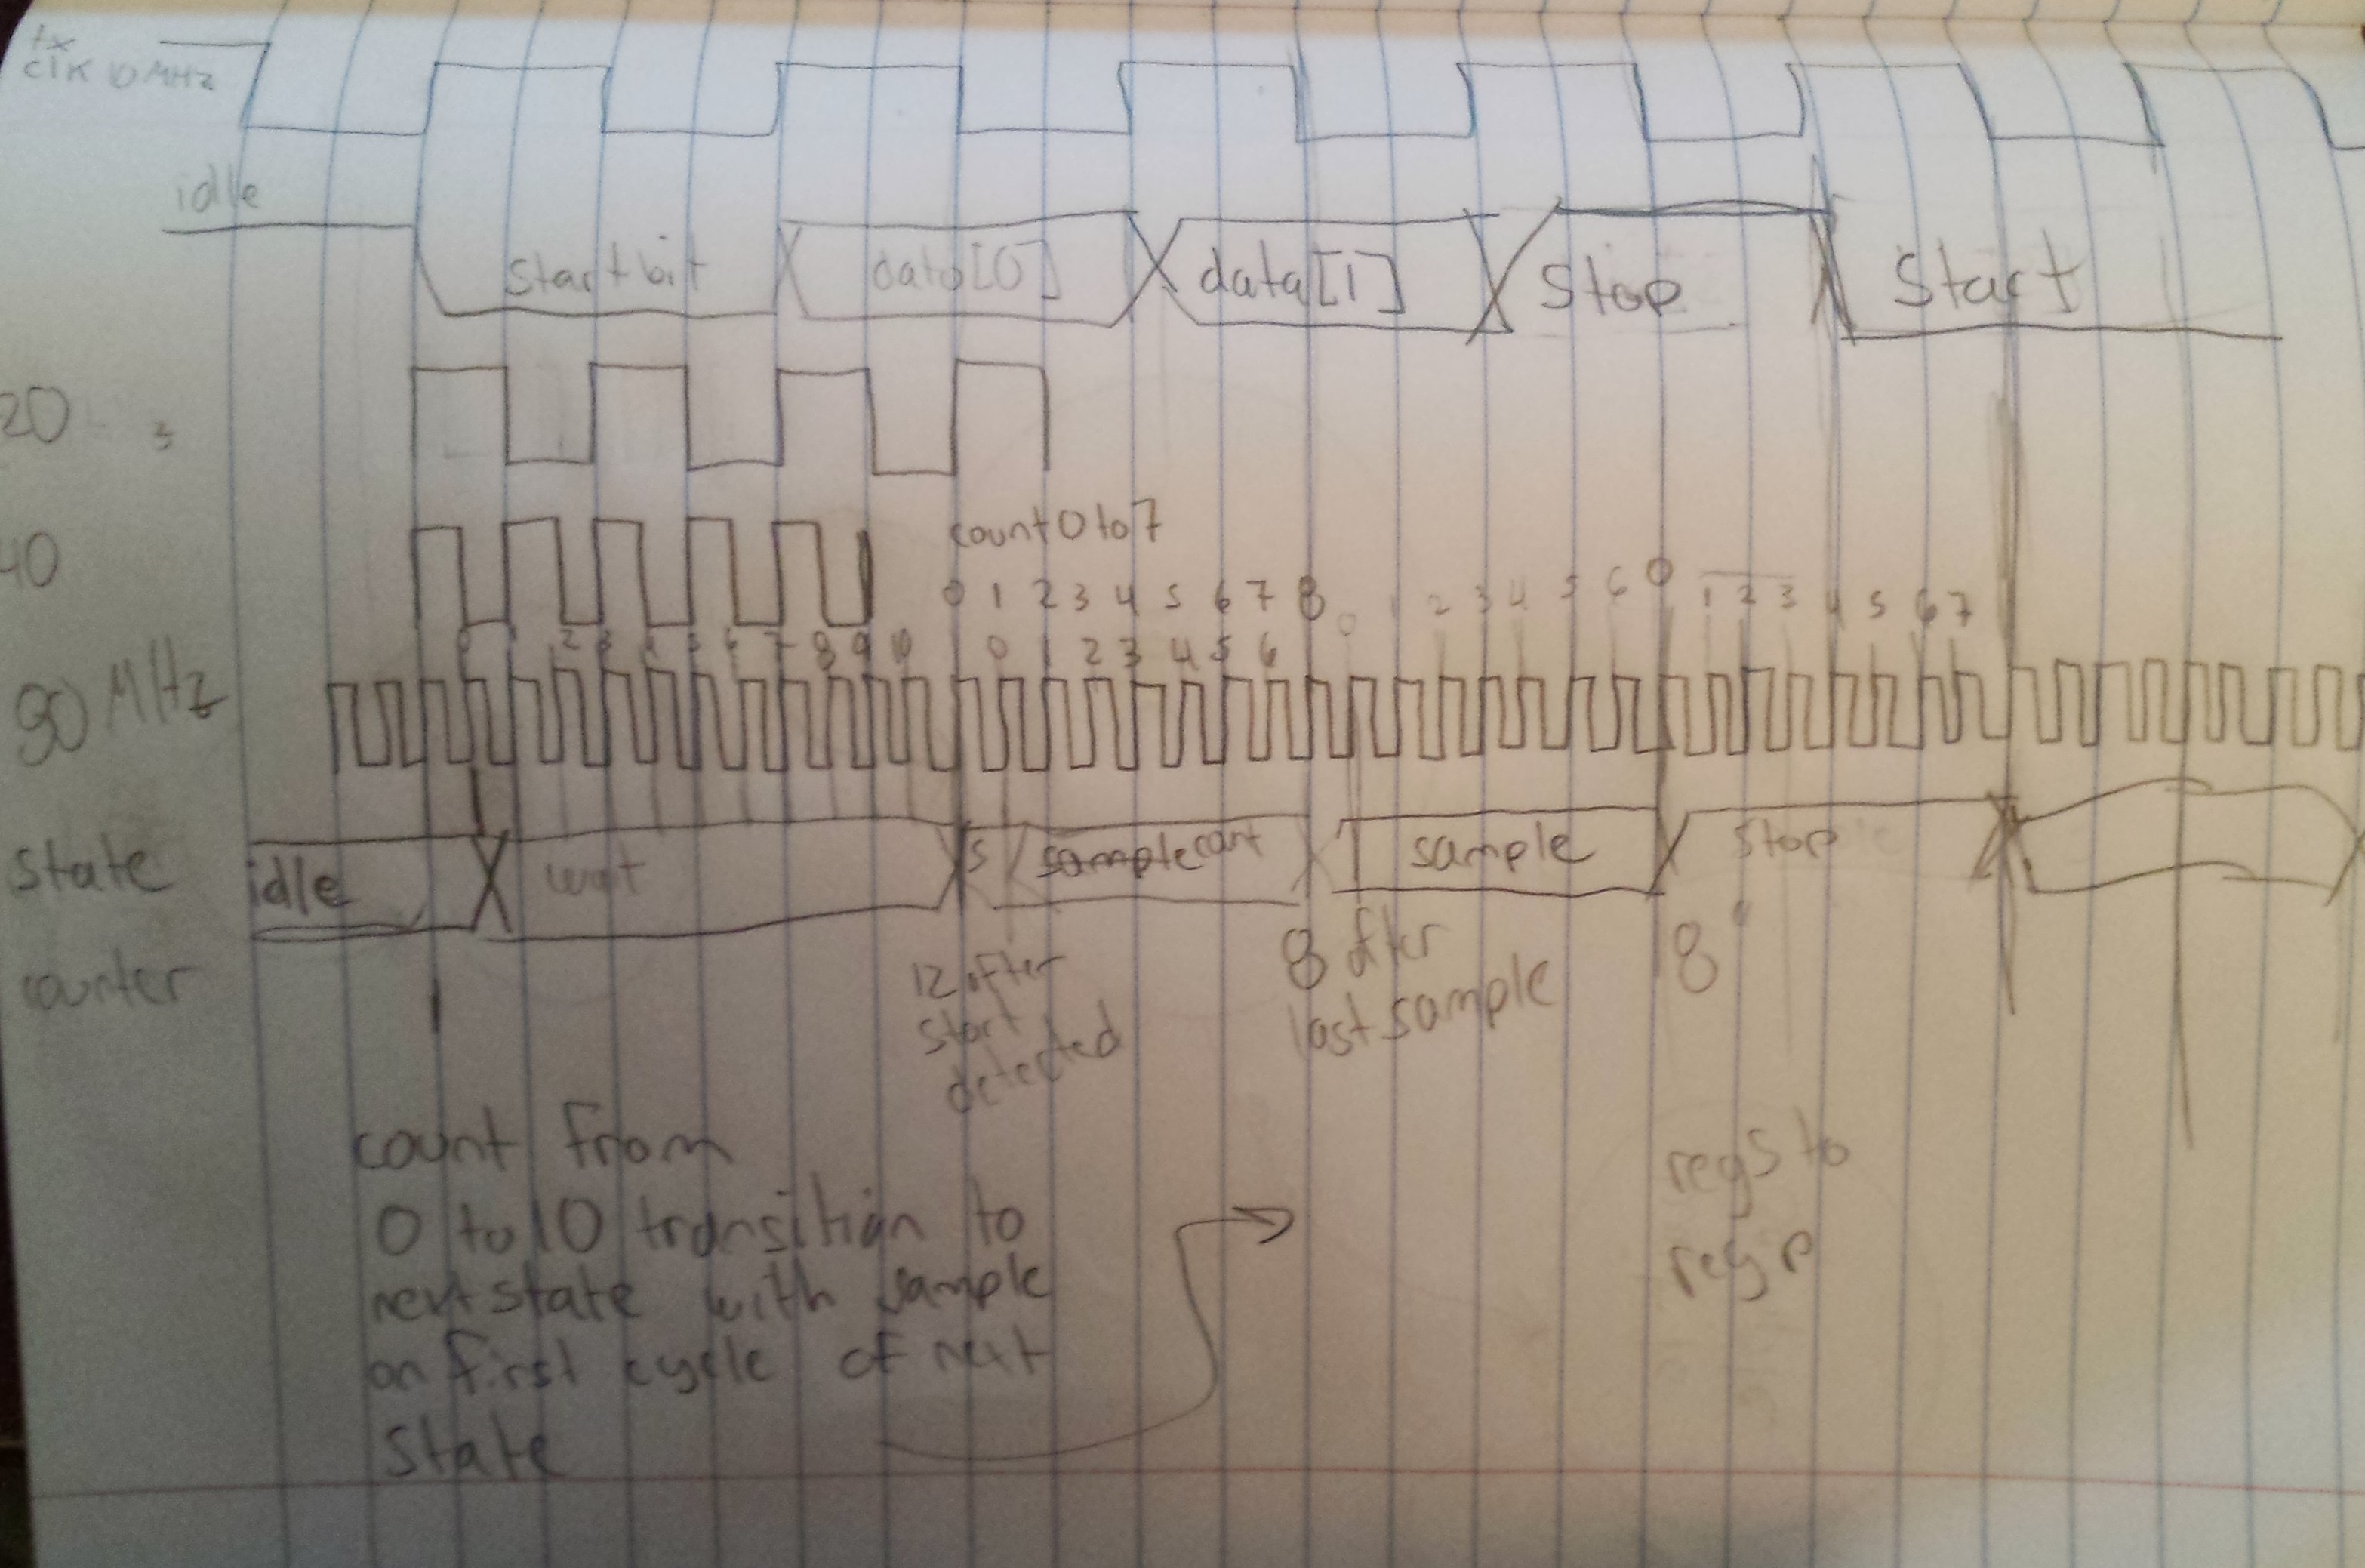 tx
clk 10 MHz
idle
Start bit
data[0]
data[1]
Stop
Start
20
40
count 0 to 7
0 1 2 3 4 5 6 7 8 0 1 2 3 4 5 6 0 1 2 3 4 5 6 7
0 1 2 3 4 5 6 7 8 9 10 0 1 2 3 4 5 6
80 MHz
State
idle
wait
S
sample cont
sample
stop
counter
12 after
start
detected
8 after
last sample
8 "
count from
0 to 10 transition to
next state with sample
on first cycle of next
State
regs to